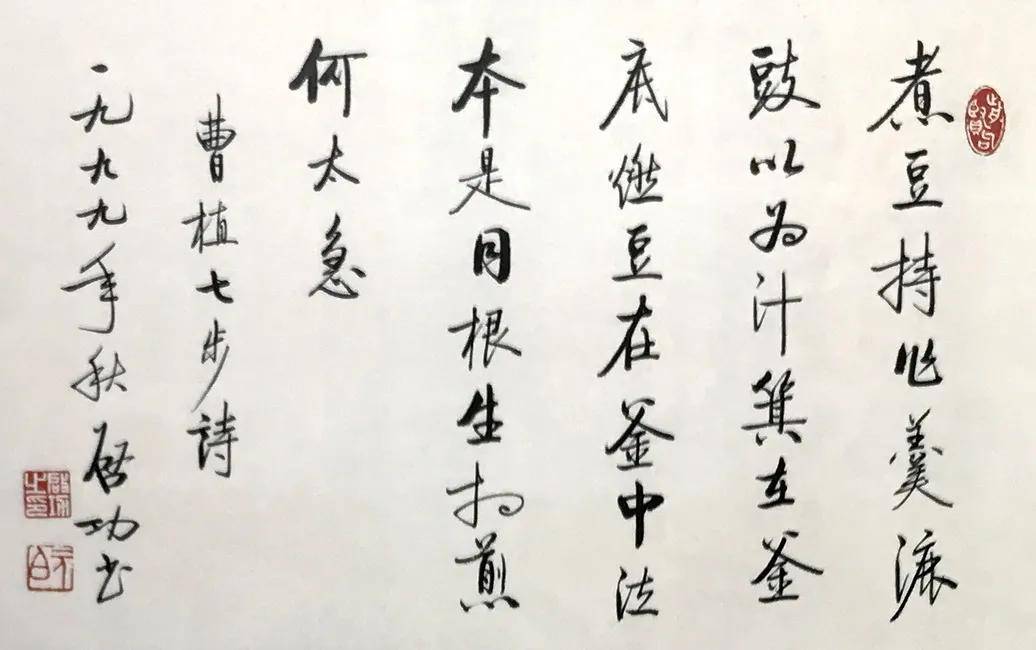 煮豆持作羹漉
豉以为汁萁在釜
底燃豆在釜中泣
本是同根生相煎
何太急
曹植七步詩
一九九九年秋启功书
啟功之印
元白